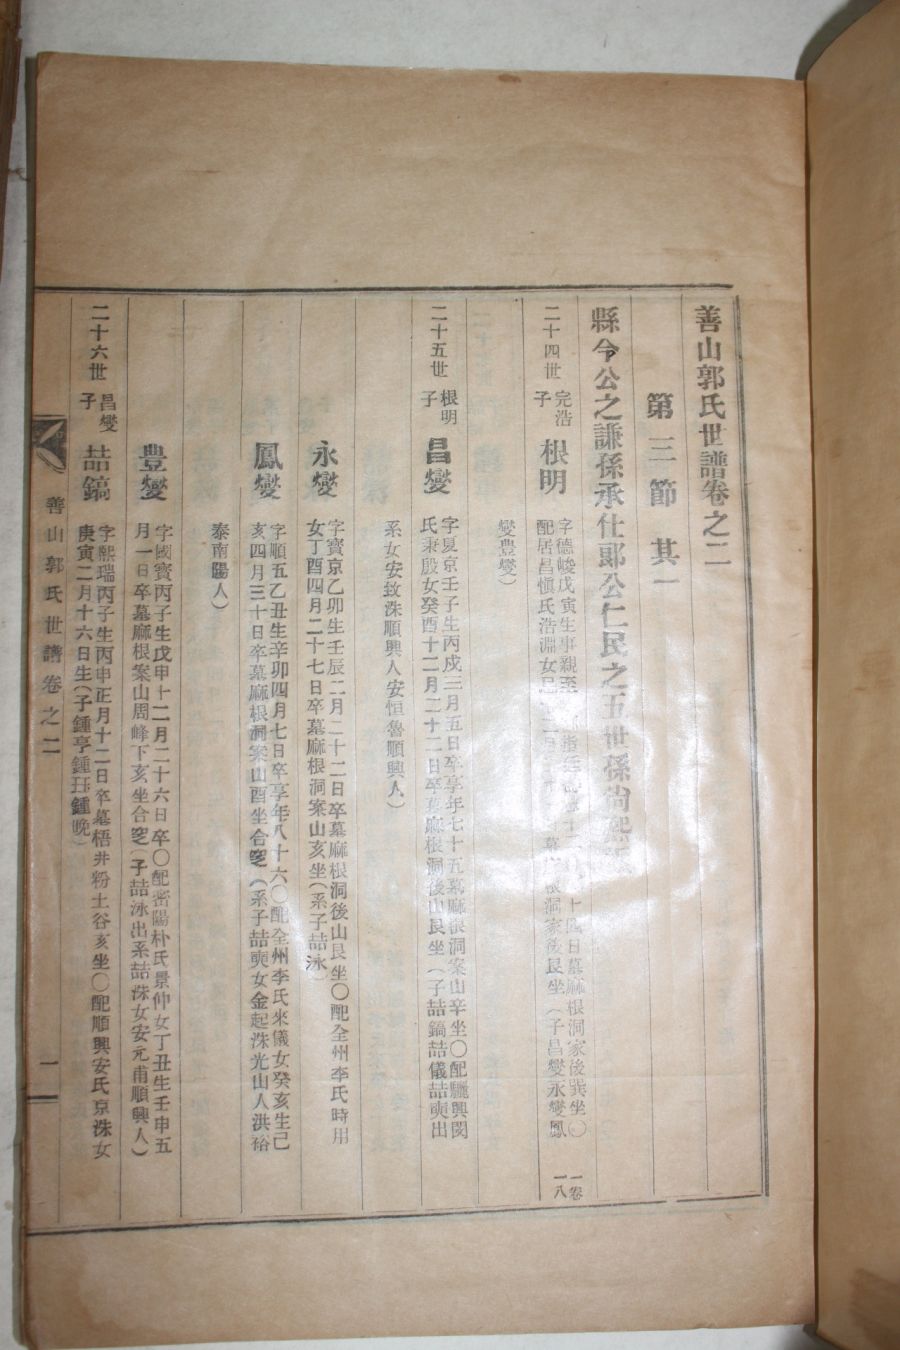 善山郭氏世譜卷之二
第三節 其一
縣令公之謙孫承仕郞公仁民之五世孫尙
二十四世 完浩子 根明 字德峻戊寅生事親至
十四日墓麻根洞家後巽坐○
配居昌愼氏浩淵女
根洞家後艮坐(子昌燮永燮鳳
一卷一八
燮豊燮)
二十五世 根明子 昌燮 字夏京壬子生丙戌三月五日卒享年七十五墓麻根洞案山辛坐○配驪興閔
氏秉殷女癸酉十二月二十二日卒墓麻根洞後山艮坐(子喆鎬喆儀喆奭出
系女安致洙順興人安恒魯順興人)
永燮 字寶京乙卯生壬辰二月二十二日卒墓麻根洞後山艮坐○配全州李氏時用
女丁酉四月二十七日卒墓麻根洞案山亥坐(系子喆泳)
鳳燮 字順五乙丑生辛卯四月七日卒享年八十六○配全州李氏來儀女癸亥生己
亥四月三十日卒墓麻根洞案山酉坐合窆(系子喆奭女金起洙光山人洪裕
泰南陽人)
豊燮 字國寶丙子生戊申十二月二十六日卒○配密陽朴氏景仲女丁丑生壬申五
月一日卒墓麻根案山周峰下亥坐合窆(子喆泳出系喆洙女安元甫順興人)
二十六世 昌燮子 喆鎬 字熙瑞丙子生丙申正月十二日卒墓梧井粉土谷亥坐○配順興安氏京洙女
庚寅二月十六日生(子鍾亨鍾珏鍾晚)
善山郭氏世譜卷之二 一